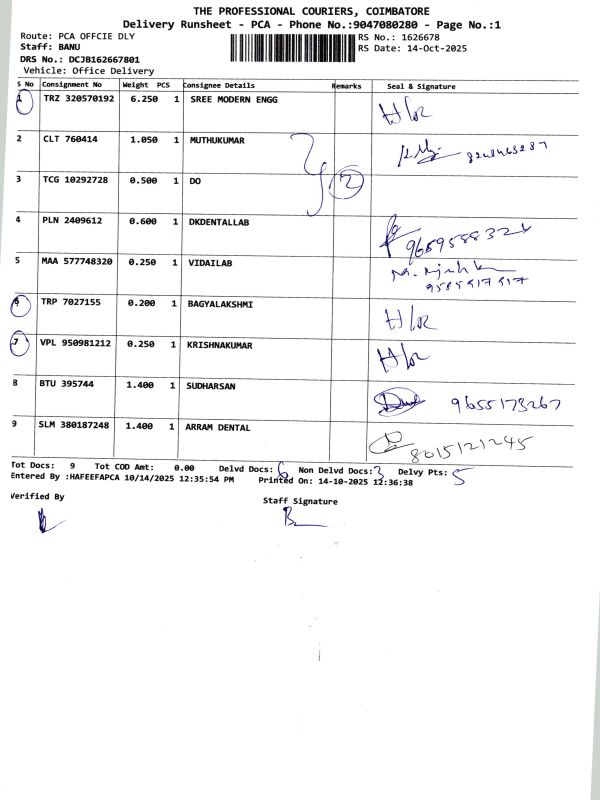 THE PROFESSIONAL COURIERS, COIMBATORE
Delivery Runsheet - PCA - Phone No.:9047080280 - Page No.:1
Route: PCA OFFCIE DLY RS No.: 1626678
Staff: BANU RS Date: 14-Oct-2025
DRS No.: DCJB162667801
Vehicle: Office Delivery
S No Consignment No Weight PCS Consignee Details Remarks Seal & Signature
1 TRZ 320570192 6.250 1 SREE MODERN ENGG H/or
2 CLT 760414 1.050 1 MUTHUKUMAR
3 TCG 10292728 0.500 1 DO 2
4 PLN 2409612 0.600 1 DKDENTALLAB
5 MAA 577748320 0.250 1 VIDAILAB
6 TRP 7027155 0.200 1 BAGYALAKSHMI H/or
7 VPL 950981212 0.250 1 KRISHNAKUMAR H/or
8 BTU 395744 1.400 1 SUDHARSAN 9655173267
9 SLM 380187248 1.400 1 ARRAM DENTAL 8015121245
Tot Docs: 9 Tot COD Amt: 0.00 Delvd Docs: 6 Non Delvd Docs: 3 Delvy Pts: 5
Entered By :HAFEEFAPCA 10/14/2025 12:35:54 PM Printed On: 14-10-2025 12:36:38
Verified By Staff Signature